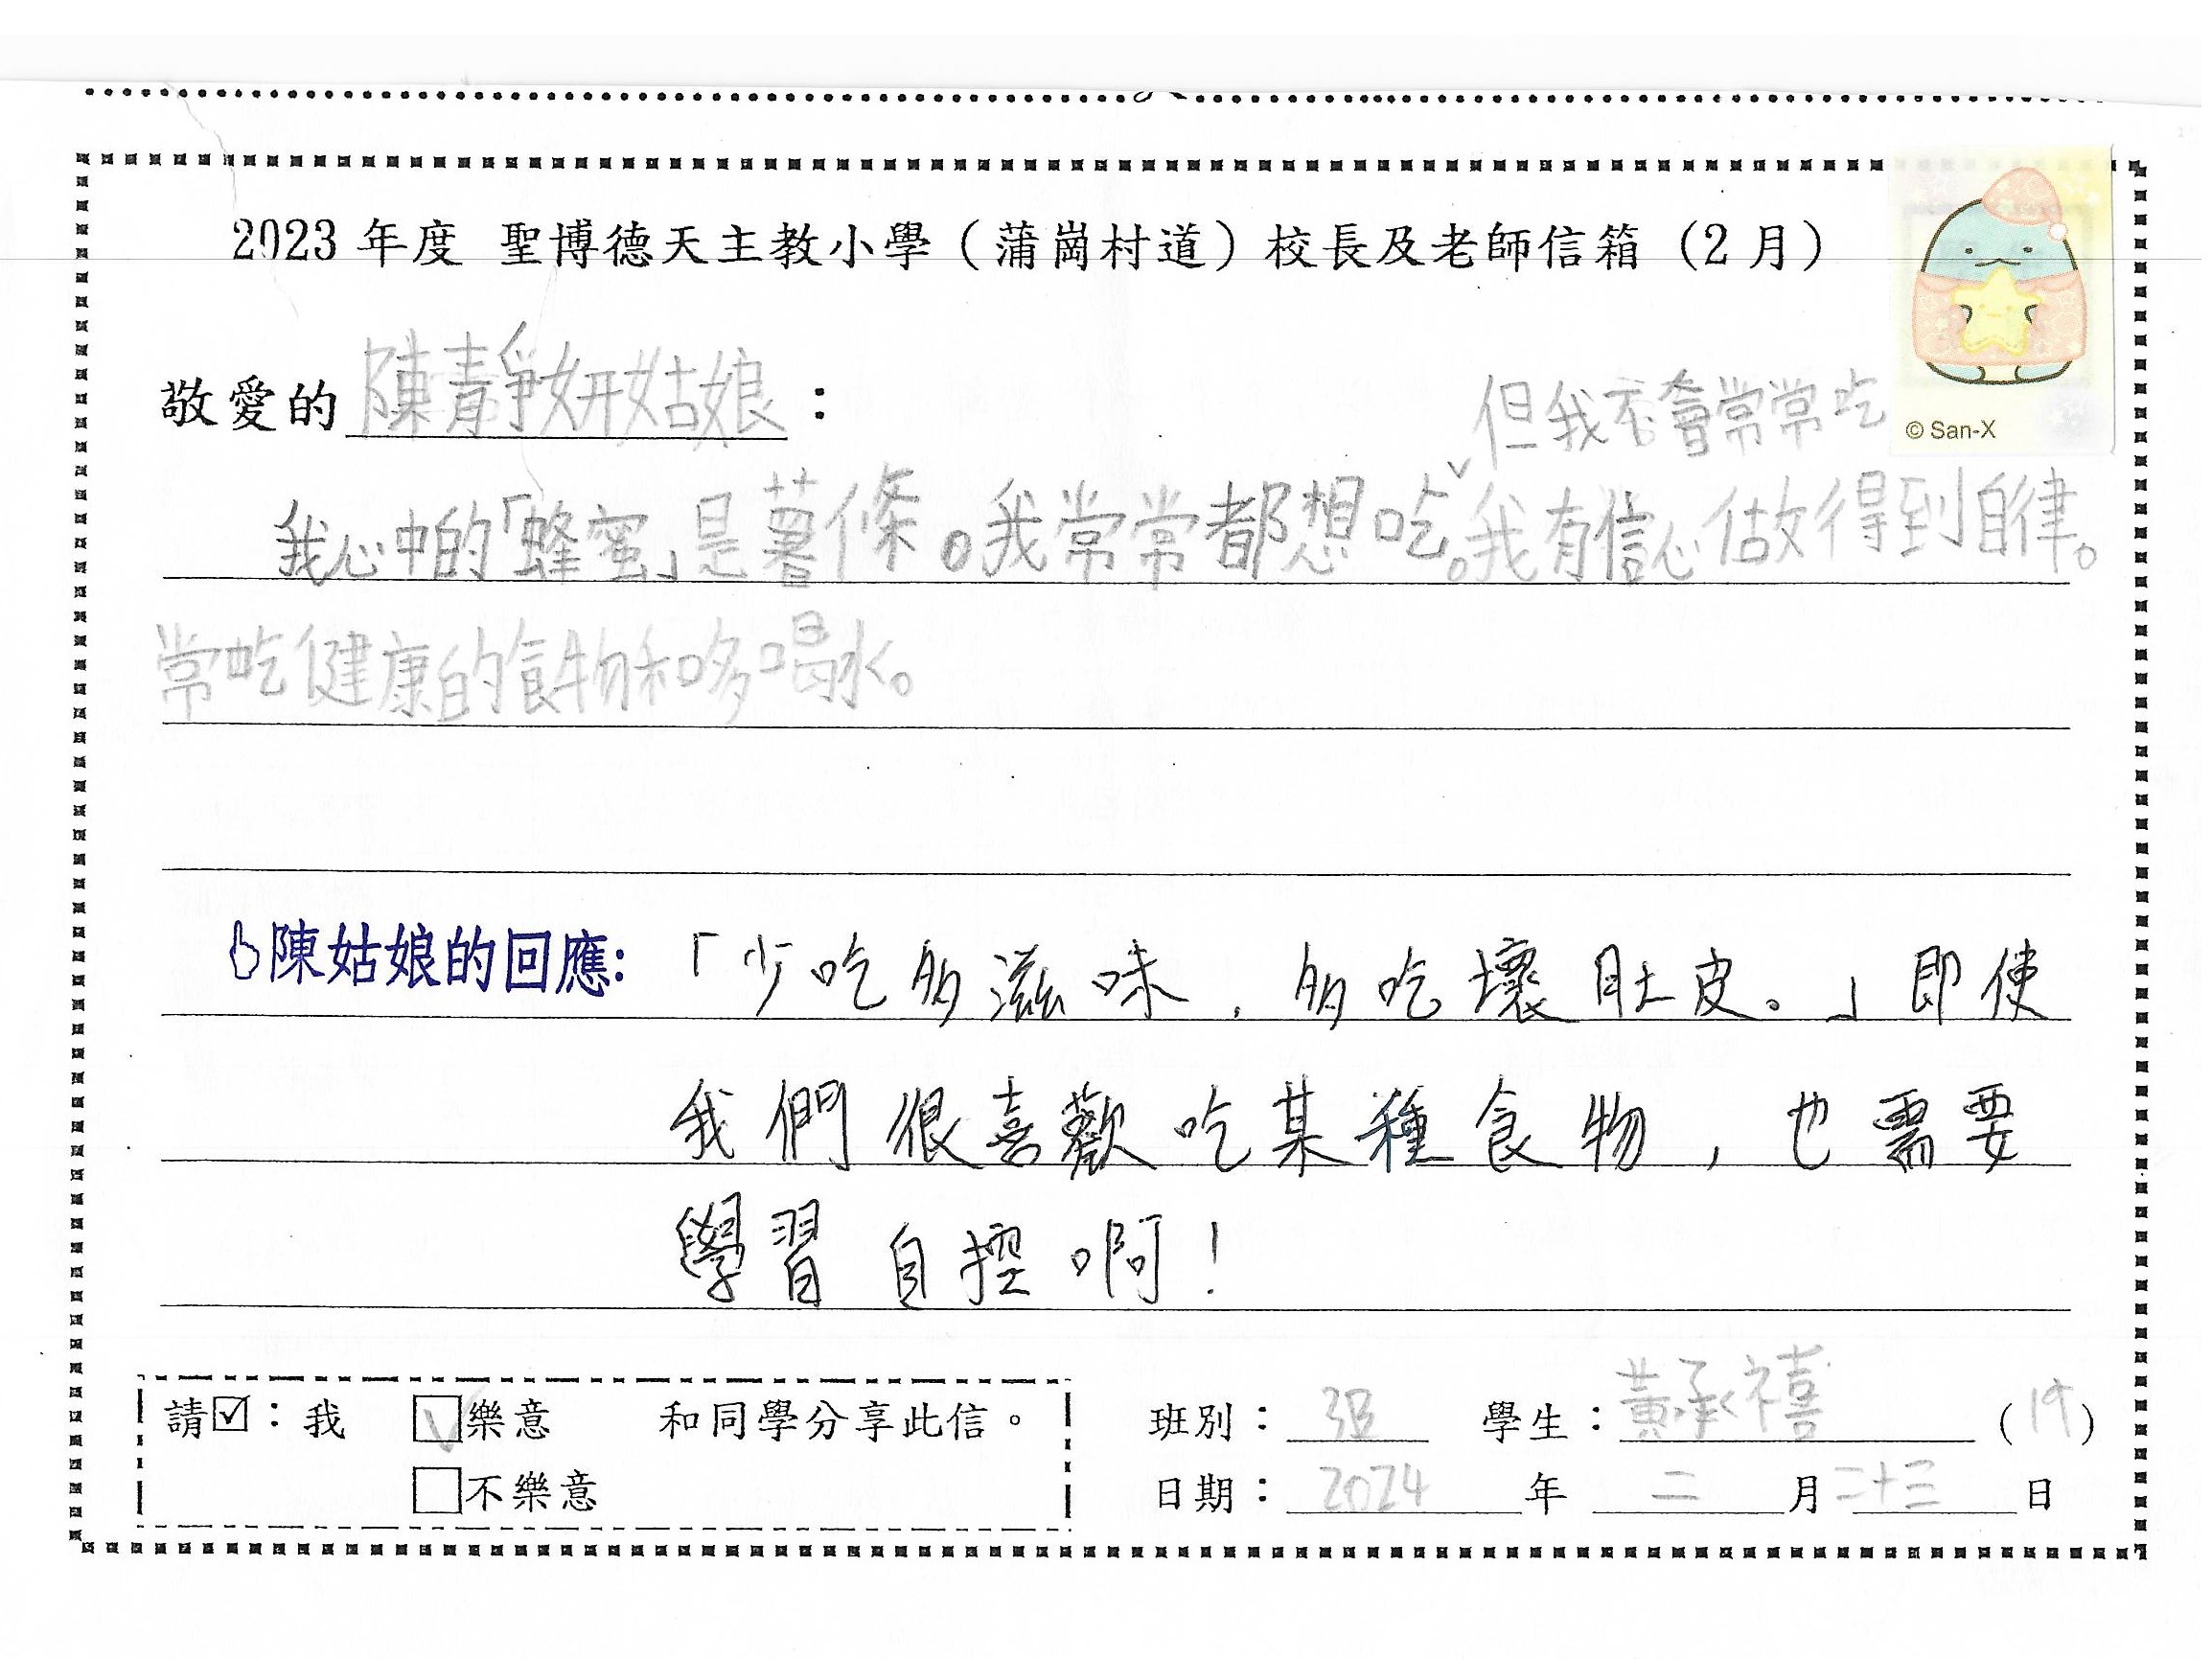 2023 年度 聖博德天主教小學（蒲崗村道）校長及老師信箱（2 月）
敬愛的 陳靜妍姑娘 ：
但我不會常常吃
© San-X
我心中的「蜂蜜」是薯條。我常常都想吃。我有信心做得到自律。
常吃健康的食物和多喝水。
陳姑娘的回應: 「少吃多滋味，多吃壞肚皮。」即使
我們很喜歡吃某種食物，也需要
學習自控啊！
請☑：我 樂意 和同學分享此信。
不樂意
班別： 學生：黃承禧
日期：2024 年 二 月 二十三 日